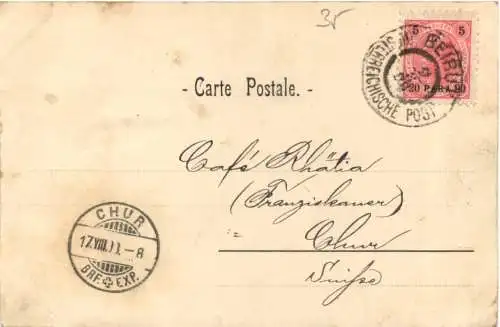 35
5 5
BEIRUT
20 PARA 20
ÖSTERREICHISCHE POST
- Carte Postale. -
Café Rhätia
(Franziskaner)
Chur
Suisse
CHUR
17.VIII.01.-8
BRF. EXP.